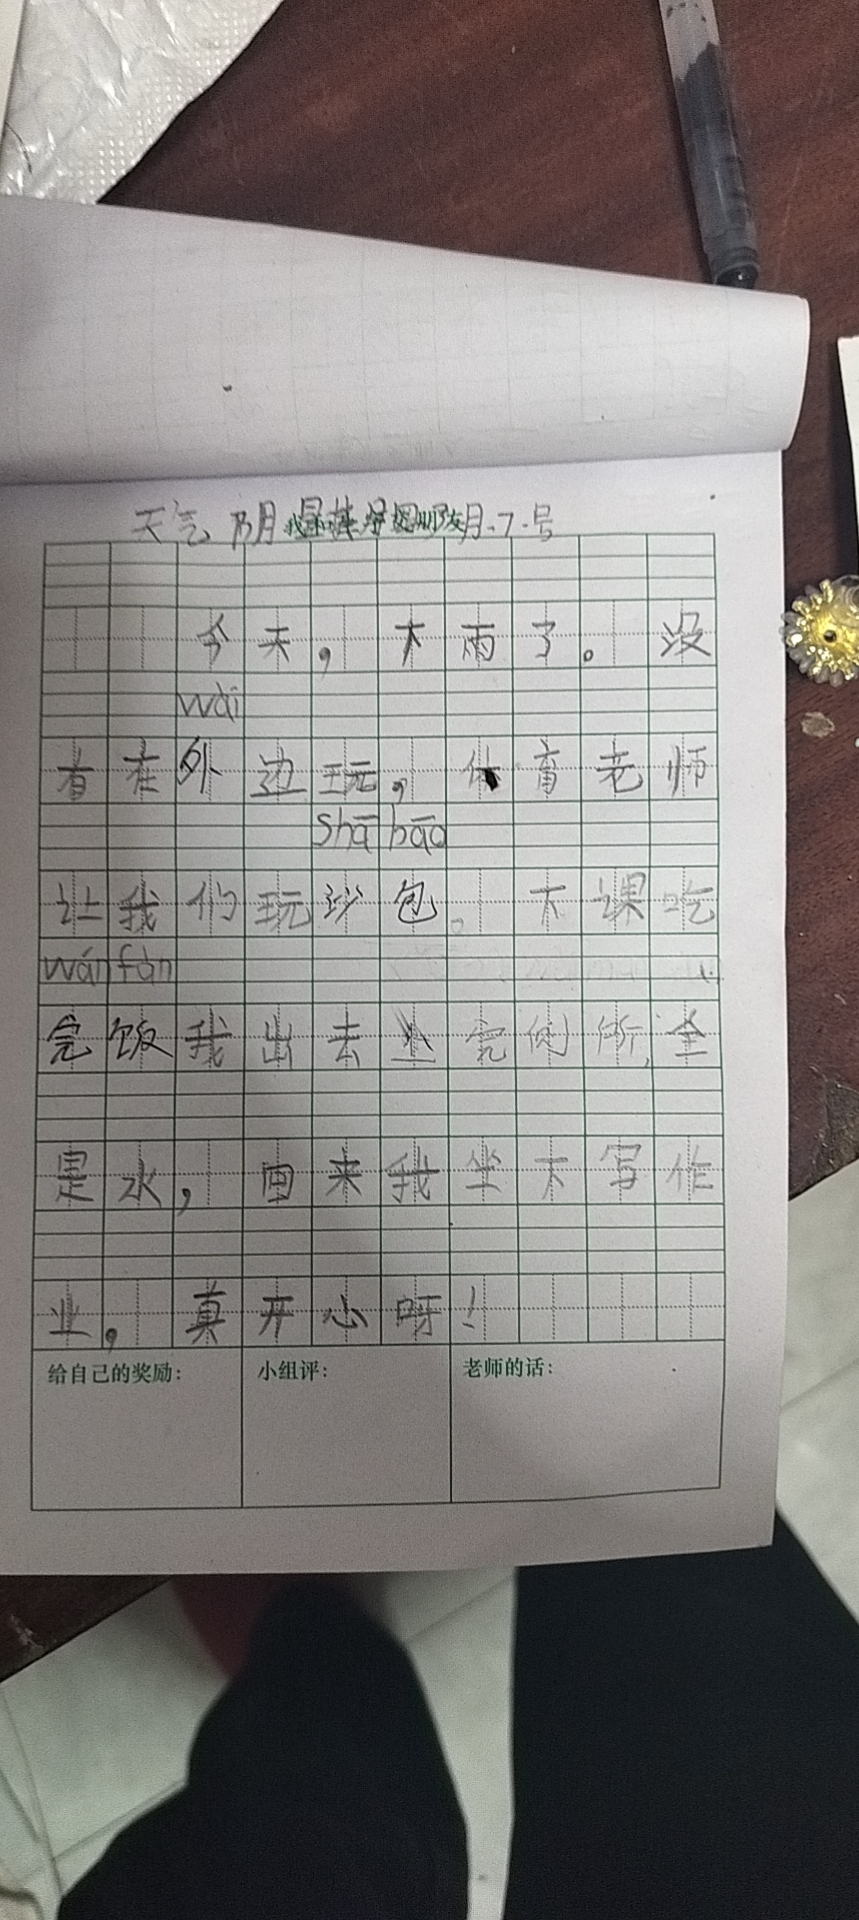 天气 阴 月.7.号
今天，下雨了。没
wài
有在外边玩，体育老师
shā bāo
让我们玩沙包。下课吃
wán fàn
完饭我出去 完 所,全
是水，回来我坐下写作
业，真开心呀！
给自己的奖励： 小组评： 老师的话：